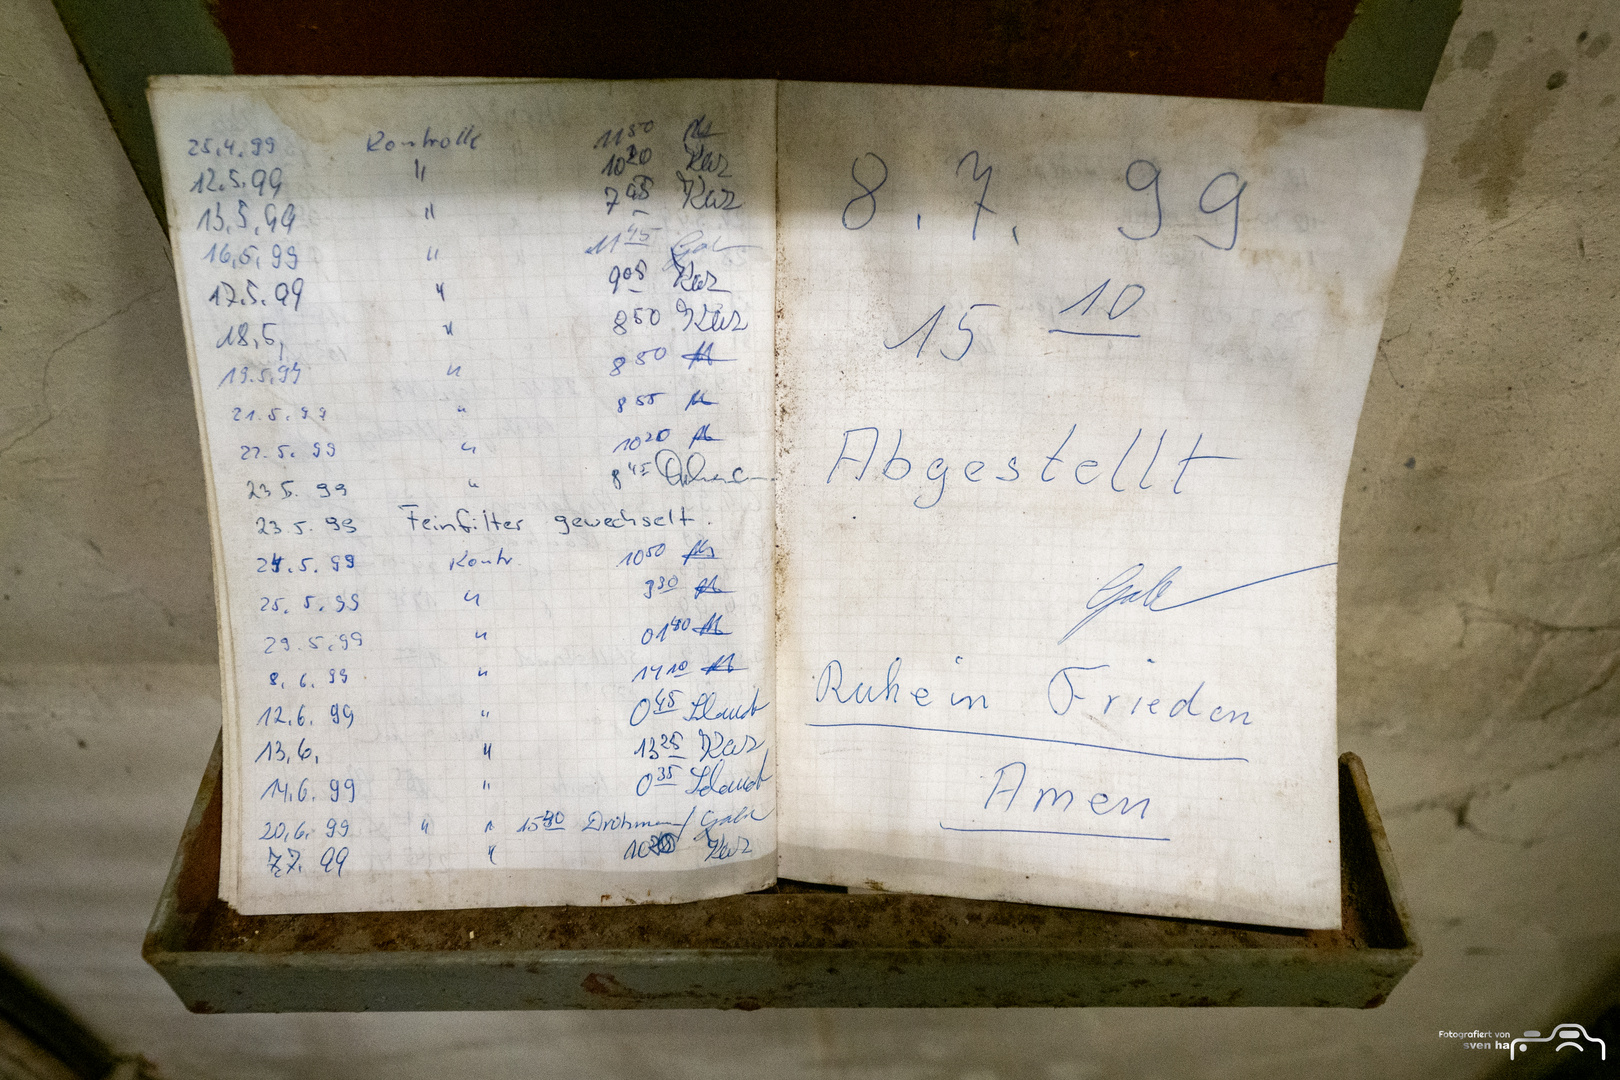 25.4.99 Kontrolle 11 50
12.5.99 " 10 20 Kaz
13.5.99 " 7 45 Kaz
16.5.99 " 11 45 Gab
17.5.99 " 9 05 Kaz
18.5, " 8 50 Kaz
19.5.99 " 8 50
21.5.99 " 8 55
22.5.99 " 10 20
23 5. 99 " 8 45
23 5. 99 Feinfilter gewechselt.
24.5.99 Kontr. 10 50
25.5.99 " 9 30
29.5.99 "
8.6.99 " 14 10
12.6.99 " 0 45
13.6. " 13 25 Kaz
14.6.99 " 0 35
20.6.99 " " Gab
7.7.99 " Kaz
8.7.99
15 10
Abgestellt
Gab
Ruhe in Frieden
Amen
Fotografiert von
sven ha